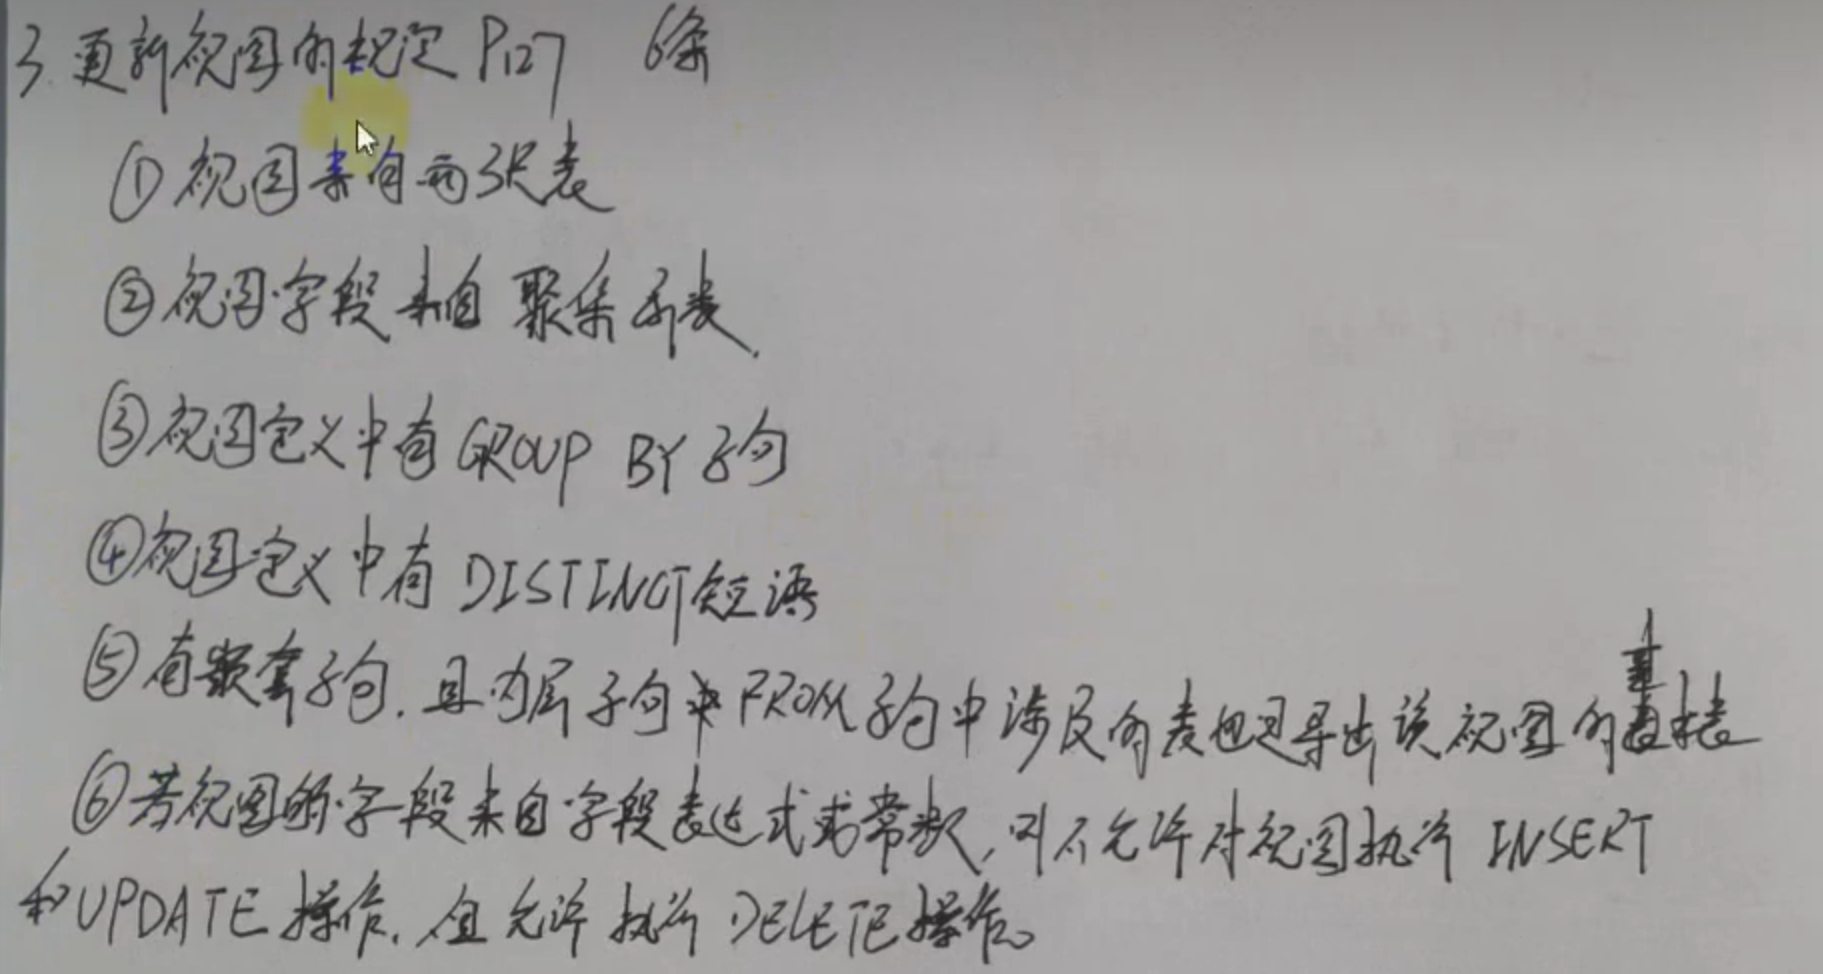 3. 更新视图的规定 P127 6条
① 视图来自两张表
② 视图字段来自聚集函数.
③ 视图定义中有 GROUP BY 子句
④ 视图定义中有 DISTINCT 短语
⑤ 有嵌套子句，且内层子句中 FROM 子句中涉及的表也是导出该视图的基本表
⑥ 若视图的字段来自字段表达式或常数，则不允许对视图执行 INSERT
和 UPDATE 操作，但允许执行 DELETE 操作。